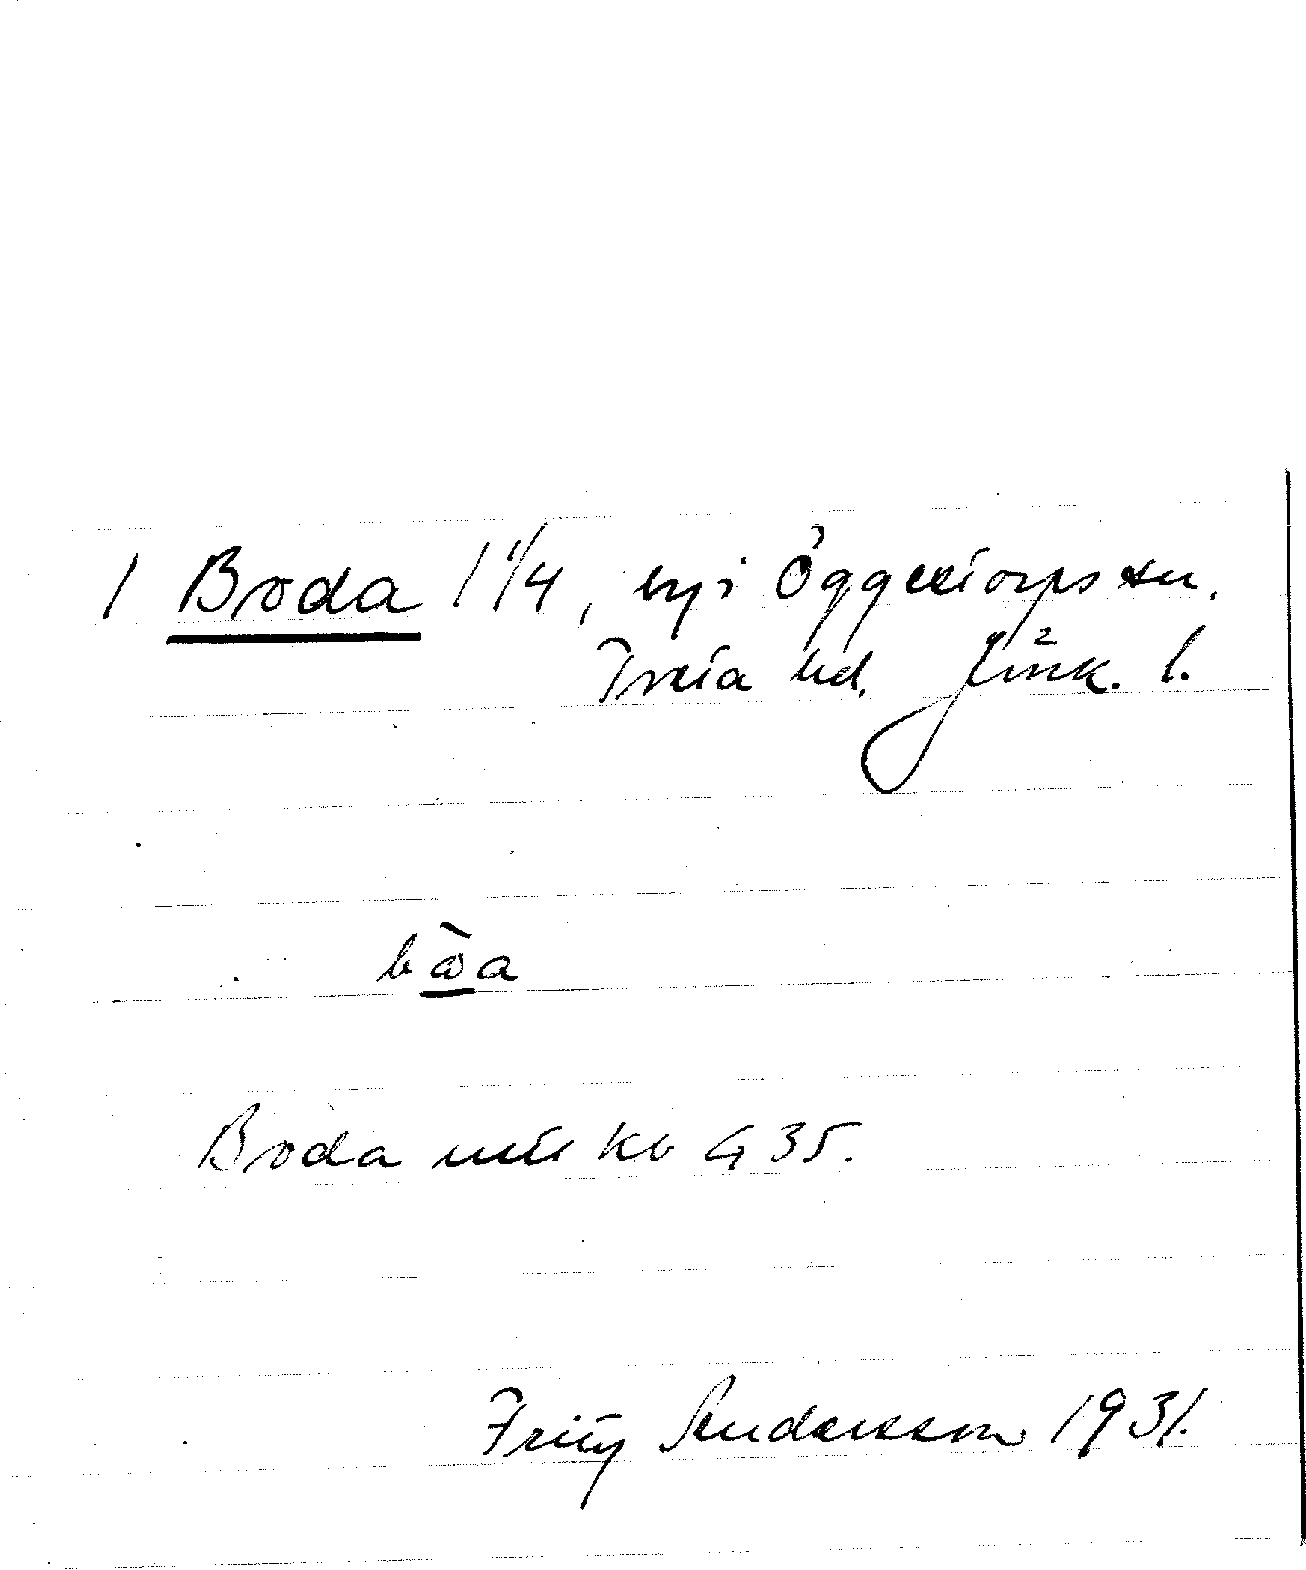 1 Boda 1 1/4, by i Öggestorps sn,
Tveta hd, Jönk. l.
bω̄̀a
Boda utt kb G 35.
Fritz Andersson 1931.